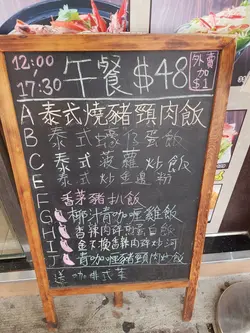 12:00
17:30
午餐$48
外賣
加
$1
A 泰式燒豬頸肉飯
B 泰式蠔仔蛋飯
C 泰式菠蘿炒飯
E 泰式炒金邊粉
F 香茅豬扒飯
G 椰汁青咖喱雞飯
H 香辣肉碎煎蛋白飯
I 金不換香辣肉碎炒河
J 青咖喱豬頸肉炒飯
送 咖啡或茶